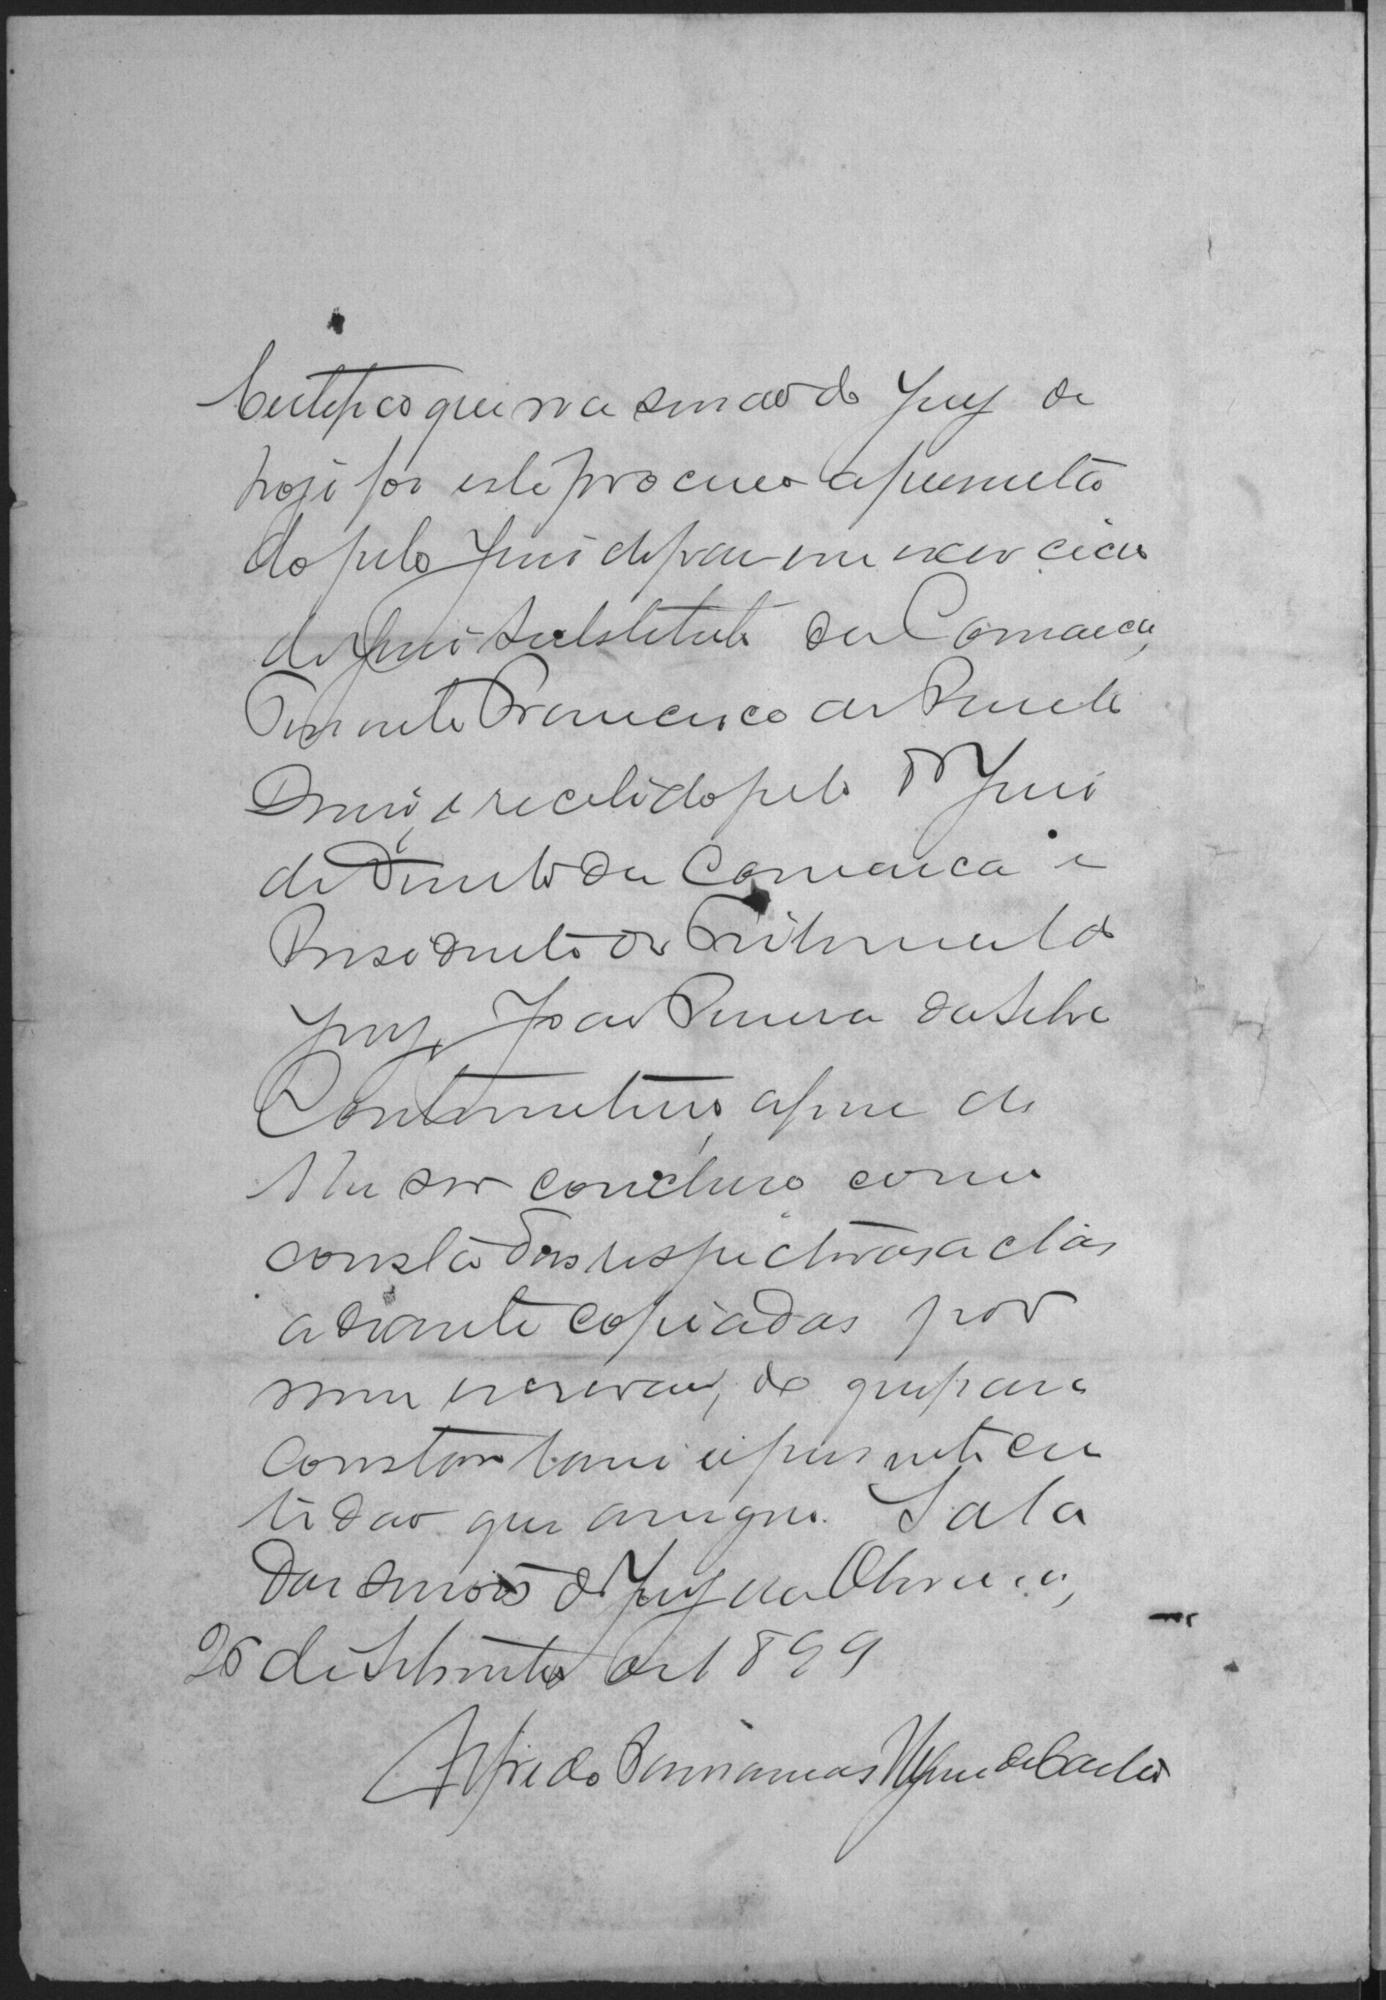 Certifico que na sessão do Jury de
hoje foi este processo apresenta
do pelo Juis de pas em exercicio
de Juis Substituto da Comarca,
Tenente Francisco de Paula
e recebido pelo Dr Juis
de Direito da Comarca e
Presidente do Tribunal do
Jury, João Pereira da Silva
afim de
lhe ser concluso como
consta das respectivas actas
adiante copiadas por
mim escrivão, do que para
constar lavrei a presente cer
tidão que assigno. Sala
das sessões do Jury da
26 de Setembro de 1899
Alfredo